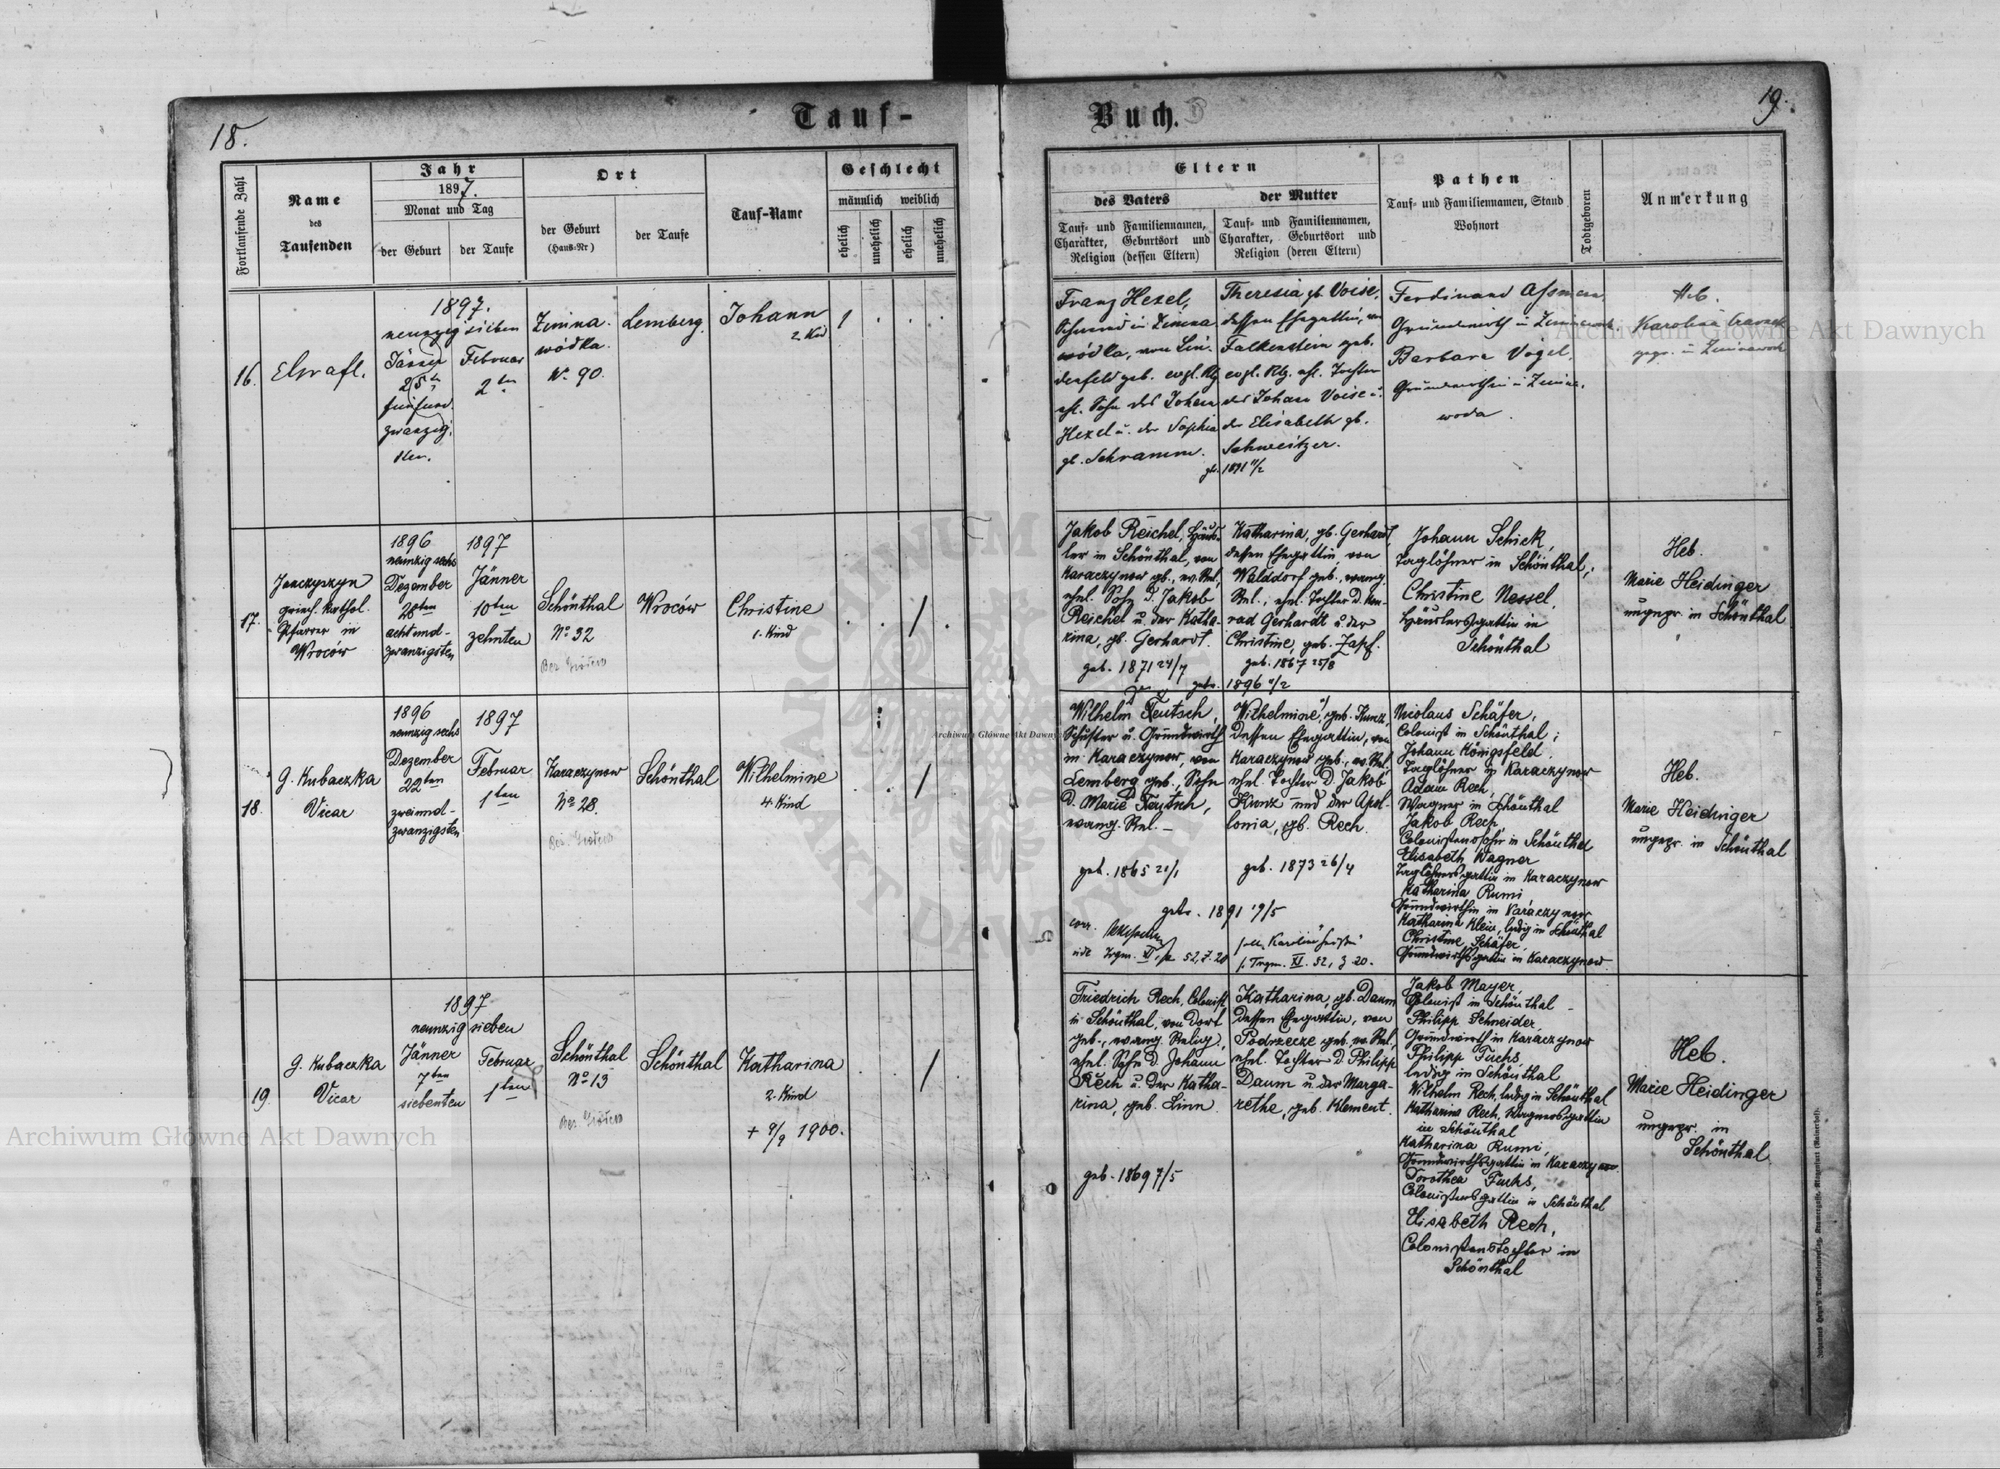 18.
Tauf-
Buch.
19.
Fortlaufende Zahl
Name
des
Taufenden
Jahr
1897.
Monat und Tag
der Geburt
der Taufe
Ort
der Geburt
(Haus-Nr)
der Taufe
Tauf-Name
Geschlecht
männlich weiblich
ehelich
unehelich
ehelich
unehelich
Eltern
des Vaters
Tauf- und Familiennamen,
Charakter, Geburtsort und
Religion (dessen Eltern)
der Mutter
Tauf- und Familiennamen,
Charakter, Geburtsort und
Religion (deren Eltern)
Pathen
Tauf- und Familiennamen, Stand
Wohnort
Todtgeboren
Anmerkung
16.
1897.
neunzig sieben
Jänner
25ten
fünfund
zwanzig
sten.
Februar
2ten
Zimna
wódka.
Nº 90.
Lemberg.
Johann
2 Kind
1
Franz Hexel,
in Zimna
wódka, von Lin-
denfeld geb. evgl. Rlg
ehl. Sohn des Johan
Hexel u. der Sophia
gb. Schramm.
Theresia gb. Voise,
dessen Ehegattin, von
Falkenstein geb.
evgl. Rlg. ehl. Tochter
des Johann Voise u.
der Elisabeth gb.
Schweitzer.
Ferdinand
Grundwirth in Zimnawoda.
Barbara Vogel,
Grundwirthin in Zimna-
woda.
Heb.
Karolina
gepr. in Zimnawoda
17.
Janczyszyn
griech. Kathol.
Pfarrer in
Wroców
1896
neunzig sechs
Dezember
28ten
achtund-
zwanzigsten
1897
Jänner
10ten
zehnten
Schönthal
Nº 32
Wroców
Christine
1. Kind
Jakob Reichel, Häus-
ler in Schönthal, von
Karaczynow gb., ev. Rel.,
ehel. Sohn d. Jakob
Reichel u. der Katha-
rina, gb. Gerhardt.
geb. 1871 24/7
Katharina, gb. Gerhardt,
dessen Ehegattin, von
Walddorf geb., evang.
Rel., ehel. Tochter d. Kon-
rad Gerhardt u. der
Christine, geb. Zapf.
geb. 1867 25/8
getr. 1896 11/2
Johann Schick,
Taglöhner in Schönthal;
Christine Nessel,
Häuslersgattin in
Schönthal
Heb.
Marie Heidinger
ungepr. in Schönthal
18.
G. Kubaczka
Vicar
1896
neunzig sechs
Dezember
22ten
zweiund-
zwanzigsten
1897
Februar
1ten
Karaczynow
Nº 28.
Schönthal
Wilhelmine
4. Kind
Wilhelm Teutsch,
Schuster u. Grundwirth
in Karaczynow, von
Lemberg geb., Sohn
d. Marie Teutsch,
evang. Rel. –
geb. 1865 21/1
Wilhelmine, geb. Kunz,
dessen Ehegattin, von
Karaczynow geb., ev. Rel.,
ehel. Tochter d. Jakob
Kunz und der Apol-
lonia, gb. Rech.
geb. 1873 26/4
getr. 1891 19/5
Nicolaus Schäfer,
Colonist in Schönthal;
Johann Königsfeld,
Taglöhner in Karaczynow
Adam Rech,
Wagner in Schönthal
Jakob Rech
Colonistensohn in Schönthal
Elisabeth Wagner
Taglöhnersgattin in Karaczynow
Katharina Rumi
Grundwirthin in Karaczynow
Katharina Klein, ledig in Schönthal
Christine Schäfer,
Grundwirthsgattin in Karaczynow
Heb.
Marie Heidinger
ungepr. in Schönthal
19.
G. Kubaczka
Vicar
1897
neunzig sieben
Jänner
7ten
siebenten
Februar
1ten
Schönthal
Nº 13
Schönthal
Katharina
2. Kind
+ 9/9 1900.
Friedrich Rech, Colonist
in Schönthal, von dort
geb., evang. Relig.,
ehel. Sohn d. Johann
Rech u. der Katha-
rina, geb. Linn.
geb. 1869 7/5
Katharina, gb. Daum
dessen Ehegattin, von
Podrzecze geb. ev. Rel.
ehel. Tochter d. Philipp
Daum u. der Marga-
rethe, geb. Klement.
Jakob Mayer,
Colonist in Schönthal –
Philipp Schneider,
Grundwirth in Karaczynow
Philipp Fuchs,
ledig in Schönthal
Wilhelm Rech, ledig in Schönthal
Katharina Rech, Wagnersgattin
in Schönthal
Katharina Rumi,
Grundwirthsgattin in Karaczynow
Dorothea Fuchs,
Colonistensgattin in Schönthal
Elisabeth Rech,
Colonistenstochter in
Schönthal
Heb.
Marie Heidinger
ungepr. in
Schönthal
Archiwum Główne Akt Dawnych
Archiwum Główne Akt Dawnych
Archiwum Główne Akt Dawnych
ARCHIWUM
AKT DAWNYCH